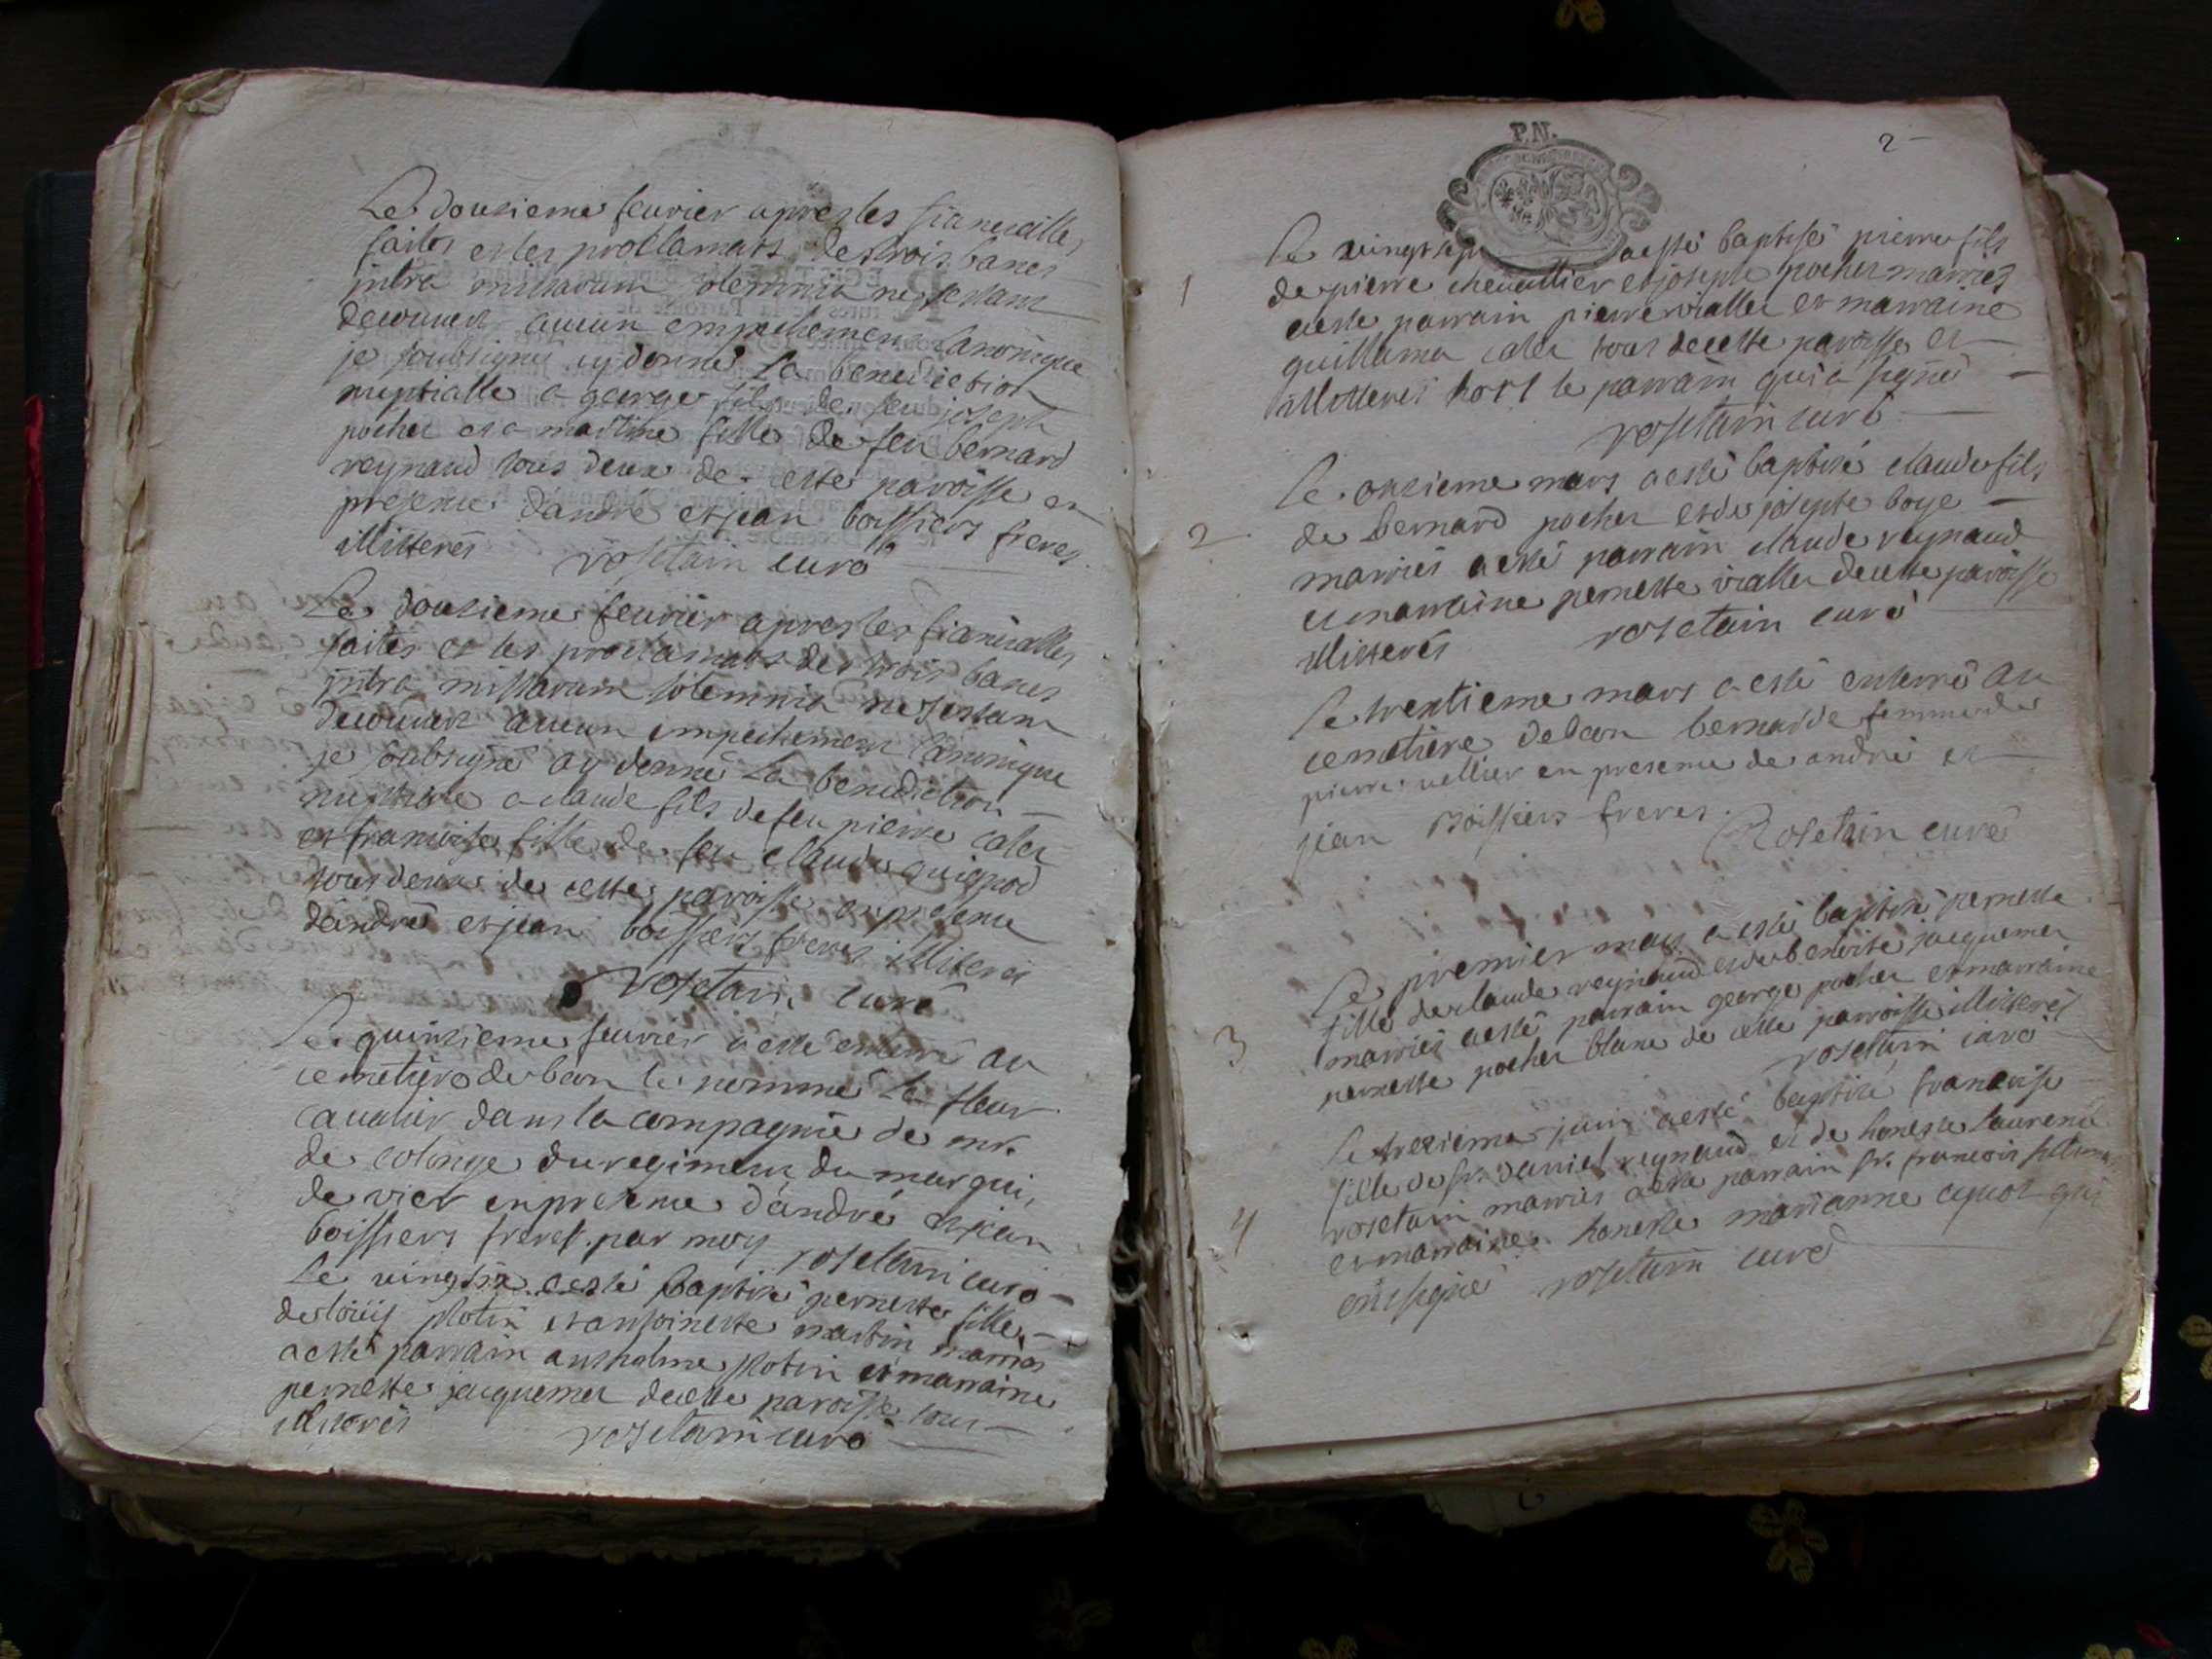 Le douzieme feurier apres les fiancailles
faites et les proclamats des trois bancs
intra missarum solemnia ne sestant
decouuert aucun empechement canonique
je soubsigné ay donné la benediction
nuptialle a george fils de feu joseph
pocher et a martine fille de feu bernard
reynaud tous deux de cette paroisse en
presence d'andré et jean boissiers freres
illitterés rosetain curé
Le douzieme feurier apres les fiancialles
faites et les proclamats des trois bancs
intra missarum solemnia ne sestant
decouuert aucun empechement canonique
je soubsigné ay donné la benediction
nuptiale a claude fils de feu pierre caler
et francoise fille de feu claude guignod
tous deux de cette paroisse en presence
d'andré et jean boissiers freres illiterés
rosetain curé
Le quinzieme feurier a esté enterré au
cemetiere de ban le nommé la fleur
caualier dans la compagnie de mr.
de colonge du regiment du marqui
de vier en presence d'andré et jean
boissiers freres par moy rosetain curé
Le vingt six a esté baptisé pernette fille
de louis Motin et anthoinette martin marriés
a esté parrain anthelme Motin et marraine
pernette jacquemer de cette paroisse tous
illiterés rosetain curé
P.N.
2
1
Le vingt sept a esté baptisé pierre fils
de pierre cheuallier et josepte pocher marriés
a esté parrain pierre vialler et marraine
guillauma caler tous de cette paroisse et
illitterés hors le parrain qui a signé
rosetain curé
2
Le onzieme mars a esté baptisé claude fils
de Bernard pocher et de josepte boye
marriés a esté parrain claude reynaud
et marraine pernette vialler de cette paroisse
illitterés rosetain curé
Le trentieme mars a esté enterré au
cemetiere de ban bernarde femme de
pierre vellier en presence de andré et
jean Boissiers freres. Rosetain curé
3
Le premier may a esté baptisé pernette
fille de claude reynaud et de benoite jacquemer
marriés a esté parrain george pocher et marraine
pernette pocher blanc de cette parroisse illitterés
rosetain curé
4
Le trezieme juin a esté baptisé francoise
fille de sr. daniel reynaud et de honeste laurence
rosetain marriés a esté parrain sr. francois
et marraine honeste marianne aynot qui
ont signé rosetain curé